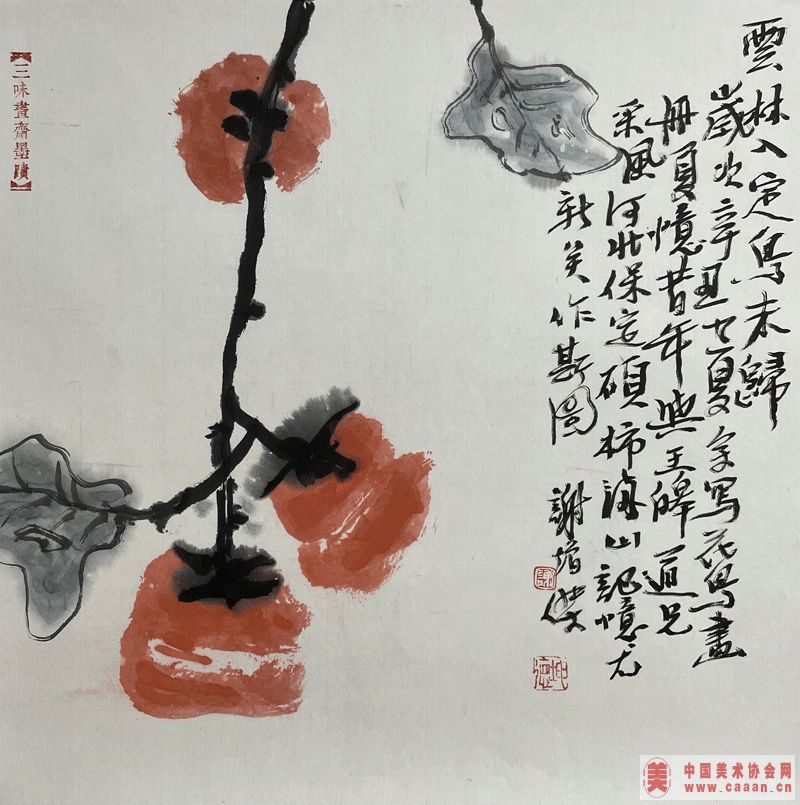 雲林入定鳥未歸
歲次辛丑之夏余寫花鳥畫
冊頁憶昔年與王暐道兄
采風河北保定碩柿滿山記憶尤
新矣作斯圖
謝增傑
【三味畫齋墨蹟】
美
中国美术协会网
www.caaan.cn